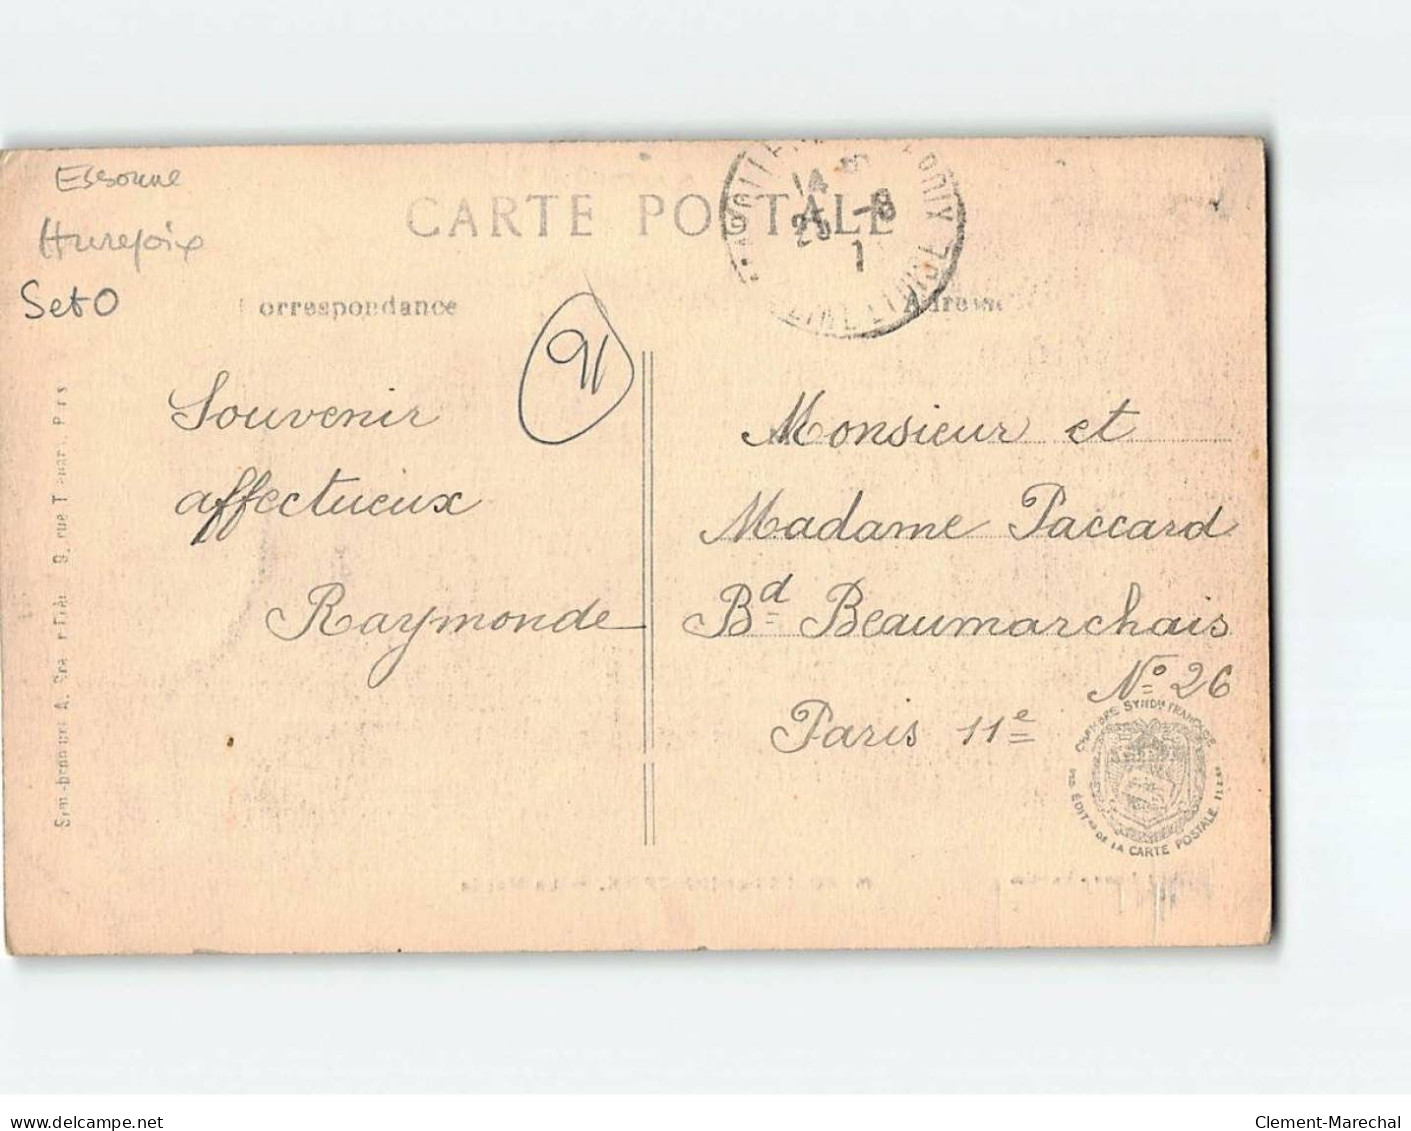 Essonne
Hurepoix
SetO
CARTE POSTALE
orrespondance
Adresse
14
25 -8
1
91
Souvenir
affectueux
Raymonde
Monsieur et
Madame Paccard
Bd Beaumarchais
No 26
Paris 11e
CHAMBRE SYNDle FRANÇAISE
DES ÉDITrs DE LA CARTE POSTALE ILLrée
9, rue
delcampe.net
Clement-Marechal